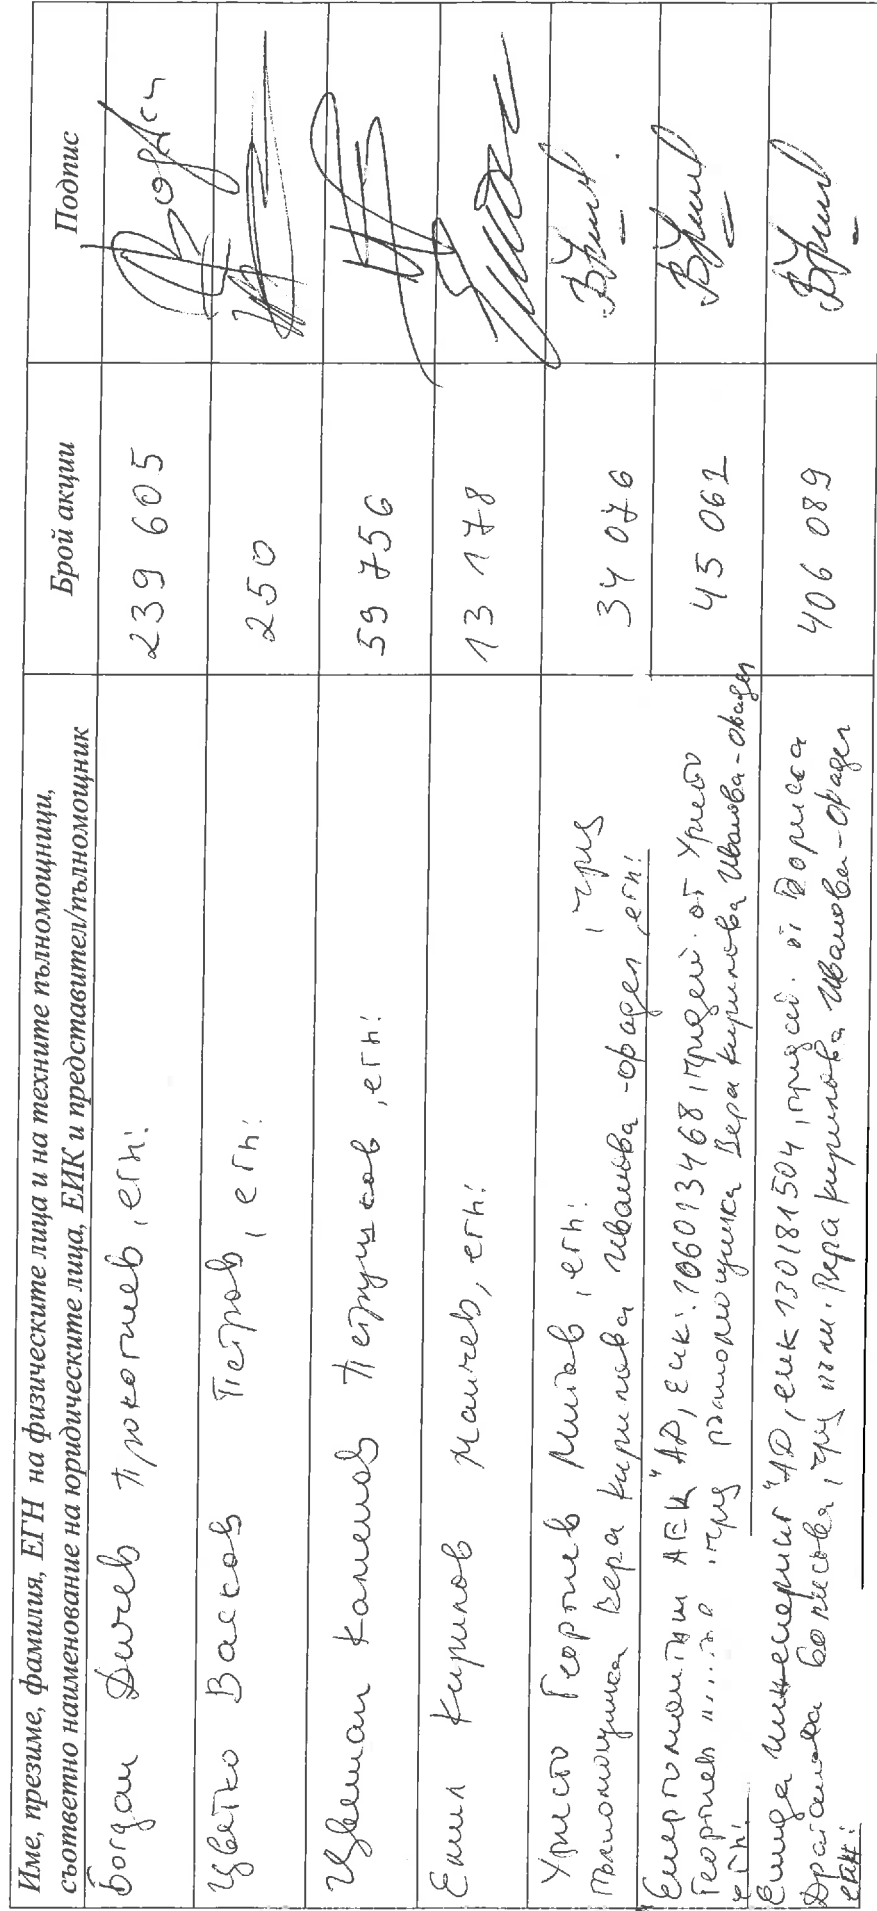 Име, презиме, фамилия, ЕГН на физическите лица и на техните пълномощници,
съответно наименование на юридическите лица, ЕИК и представител/пълномощник
Брой акции
Подпис
Богдан Дичев Прокопиев, егн:
239 605
Цветко Васков Петров, егн:
250
Цветан Каменов Петрушков, егн:
59 756
Емил Кирилов Манчев, егн:
13 178
Христо Георгиев Митов, егн: , чрез
пълномощника Вера Кирилова Иванова-Фраден, егн:
34 076
Енергомонтаж АЕК" АД, ЕИК: 106013468, предст. от Христо
Георгиев , чрез пълномощника Вера Кирилова Иванова-Фраден
егн:
45 062
Инженеринг" АД, еик 130181504, предст. от Бориска
Драганова , чрез пълн. Вера Кирилова Иванова-Фраден
егн:
406 089